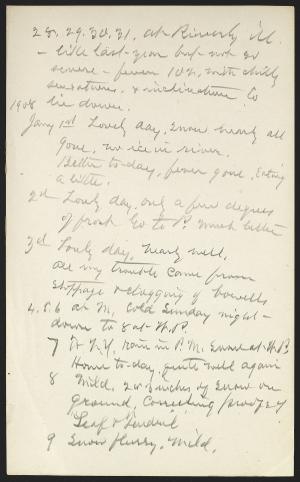 28, 29, 30, 31, at Riverby ill.
- like last year but not so
severe - fever 102, with chilly
sensations, & inclination to
1908 lie down.
Jany 1st Lovely day, snow nearly all
gone, no ice in river.
Better to-day, fever gone, Eating
a little.
2d Lovely day, only a few degrees
of frost Go to P. much better
3d Lovely day, nearly well.
All my trouble came from
stoppage & clogging of bowells
4, 5, 6 at M. Cold Sunday night -
down to 8 at W.P.
7 N.Y. rain in P.M. Snow at W.P.
Home to-day, quite well again
8 Mild, 2 or 3 inches of snow on
ground, Correcting proof of
Leaf & Tendril
9 Snow flurry, Mild.